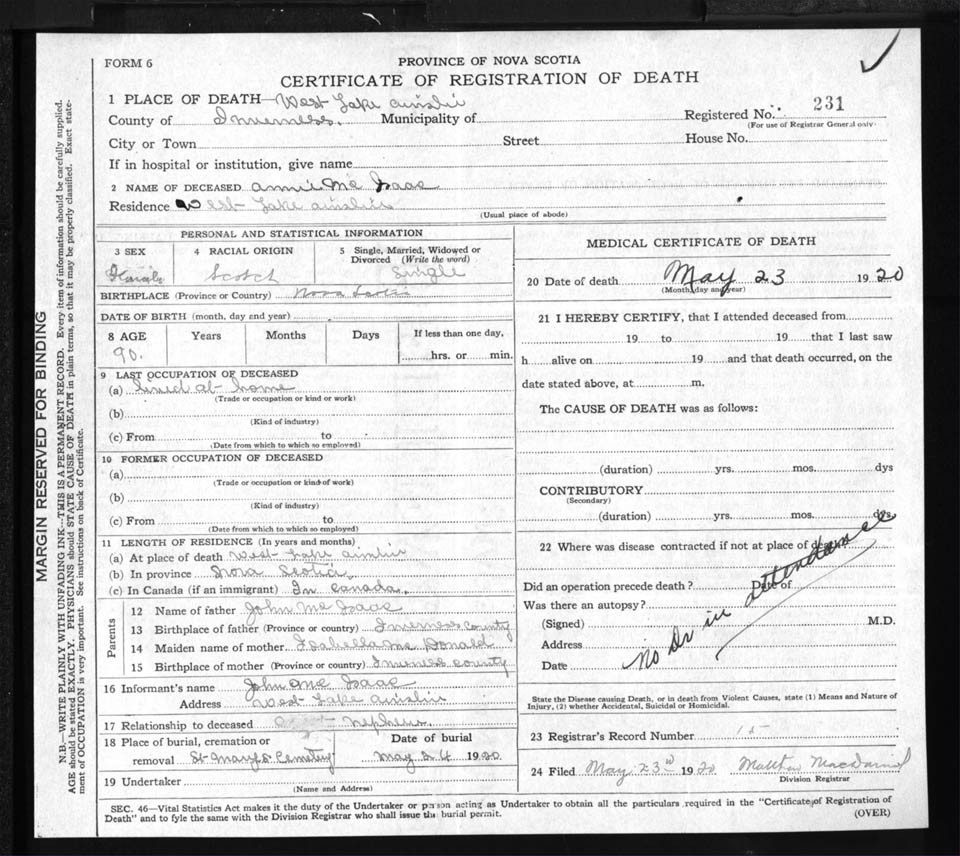 FORM 6
PROVINCE OF NOVA SCOTIA
CERTIFICATE OF REGISTRATION OF DEATH
1 PLACE OF DEATH—West Lake Ainslie
County of Inverness. Municipality of
Registered No. 231
(For use of Registrar General only.)
City or Town Street House No.
If in hospital or institution, give name
2 NAME OF DECEASED Annie Mc Isaac
Residence West Lake Ainslie
(Usual place of abode)
PERSONAL AND STATISTICAL INFORMATION
3 SEX 4 RACIAL ORIGIN 5 Single, Married, Widowed or
Divorced (Write the word)
Female Scotch Single
BIRTHPLACE (Province or Country) Nova Scotia
DATE OF BIRTH (month, day and year)
8 AGE Years Months Days If less than one day,
90. hrs. or min.
9 LAST OCCUPATION OF DECEASED
(a) at home
(Trade or occupation or kind or work)
(b)
(Kind of industry)
(c) From to
(Date from which to which so employed)
10 FORMER OCCUPATION OF DECEASED
(a)
(Trade or occupation or kind of work)
(b)
(Kind of industry)
(c) From to
(Date from which to which so employed)
11 LENGTH OF RESIDENCE (In years and months)
(a) At place of death West Lake Ainslie
(b) In province Nova Scotia
(c) In Canada (if an immigrant) In Canada.
Parents
12 Name of father John Mc Isaac
13 Birthplace of father (Province or country) Inverness County
14 Maiden name of mother Isabella Mc Donald
15 Birthplace of mother (Province or country) Inverness County
16 Informant's name John Mc Isaac
Address West Lake Ainslie
17 Relationship to deceased Nephew.
18 Place of burial, cremation or Date of burial
removal St Mary's Cemetery May 24 1920
19 Undertaker
(Name and Address)
MEDICAL CERTIFICATE OF DEATH
20 Date of death May 23 1920
(Month, day and year)
21 I HEREBY CERTIFY, that I attended deceased from
19 to 19 that I last saw
h alive on 19 and that death occurred, on the
date stated above, at m.
The CAUSE OF DEATH was as follows:
(duration) yrs. mos. dys
CONTRIBUTORY
(Secondary)
(duration) yrs. mos. dys.
22 Where was disease contracted if not at place of death?
Did an operation precede death? Date of
Was there an autopsy?
(Signed) M.D.
Address
Date
No Dr in attendance
State the Disease causing Death, or in death from Violent Causes, state (1) Means and Nature of
Injury, (2) whether Accidental, Suicidal or Homicidal.
23 Registrar's Record Number 15
24 Filed May 23rd 1920 Matthew MacDaniel
Division Registrar
SEC. 46—Vital Statistics Act makes it the duty of the Undertaker or person acting as Undertaker to obtain all the particulars required in the "Certificate of Registration of
Death" and to fyle the same with the Division Registrar who shall issue the burial permit.
(OVER)
MARGIN RESERVED FOR BINDING
N.B.—WRITE PLAINLY WITH UNFADING INK—THIS IS A PERMANENT RECORD. Every item of information should be carefully supplied.
AGE should be stated EXACTLY. PHYSICIANS should STATE CAUSE OF DEATH in plain terms, so that it may be properly classified. Exact state-
ment of OCCUPATION is very important. See instructions on back of Certificate.